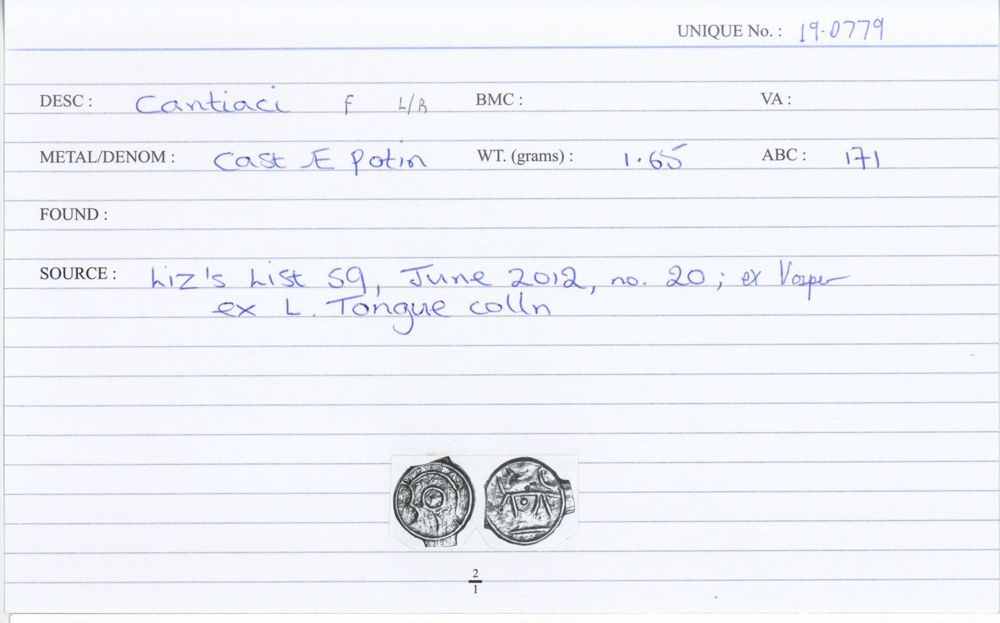 UNIQUE No. : 19-0779
DESC : Cantiaci f L/R BMC : VA :
METAL/DENOM : Cast Æ Potin WT. (grams) : 1.65 ABC : 171
FOUND :
SOURCE : Liz's List 59, June 2012, no. 20; ex Vosper
ex L. Tongue colln
2
1